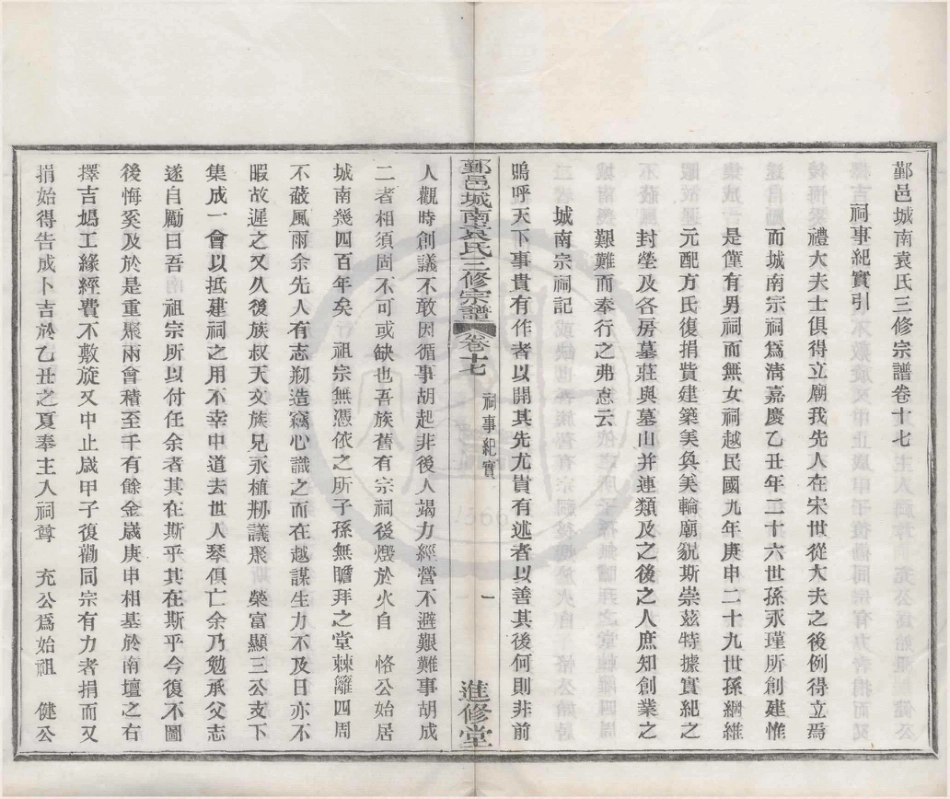 鄞邑城南袁氏三修宗譜卷十七
祠事紀實引
禮大夫士俱得立廟我先人在宋世從大夫之後例得立焉
而城南宗祠爲淸嘉慶乙丑年二十六世孫永瑾所創建惟
是僅有男祠而無女祠越民國九年庚申二十九世孫綱維
元配方氏復捐貲建築美奐美輪廟貌斯崇茲特據實紀之
封塋及各房墓莊與墓山并連類及之後之人庶知創業之
艱難而奉行之弗怠云
城南宗祠記
嗚呼天下事貴有作者以開其先尤貴有述者以善其後何則非前
鄞邑城南袁氏三修宗譜 卷十七 祠事紀實 一 進修堂
人觀時創議不敢因循事胡起非後人竭力經營不避艱難事胡成
二者相須固不可或缺也吾族舊有宗祠後燬於火自 恪公始居
城南幾四百年矣 祖宗無憑依之所子孫無瞻拜之堂棘籬四周
不蔽風雨余先人有志剏造竊心識之而在越謀生力不及日亦不
暇故遲之又久後族叔天文族兄永植剏議聚 榮富顯三公支下
集成一會以抵建祠之用不幸中道去世人琴俱亡余乃勉承父志
遂自勵曰吾 祖宗所以付任余者其在斯乎其在斯乎今復不圖
後悔奚及於是重聚兩會積至千有餘金歲庚申相基於南壇之右
擇吉鳩工緣經費不敷旋又中止歲甲子復勸同宗有力者捐而又
捐始得告成卜吉於乙丑之夏奉主入祠尊 充公爲始祖 健公